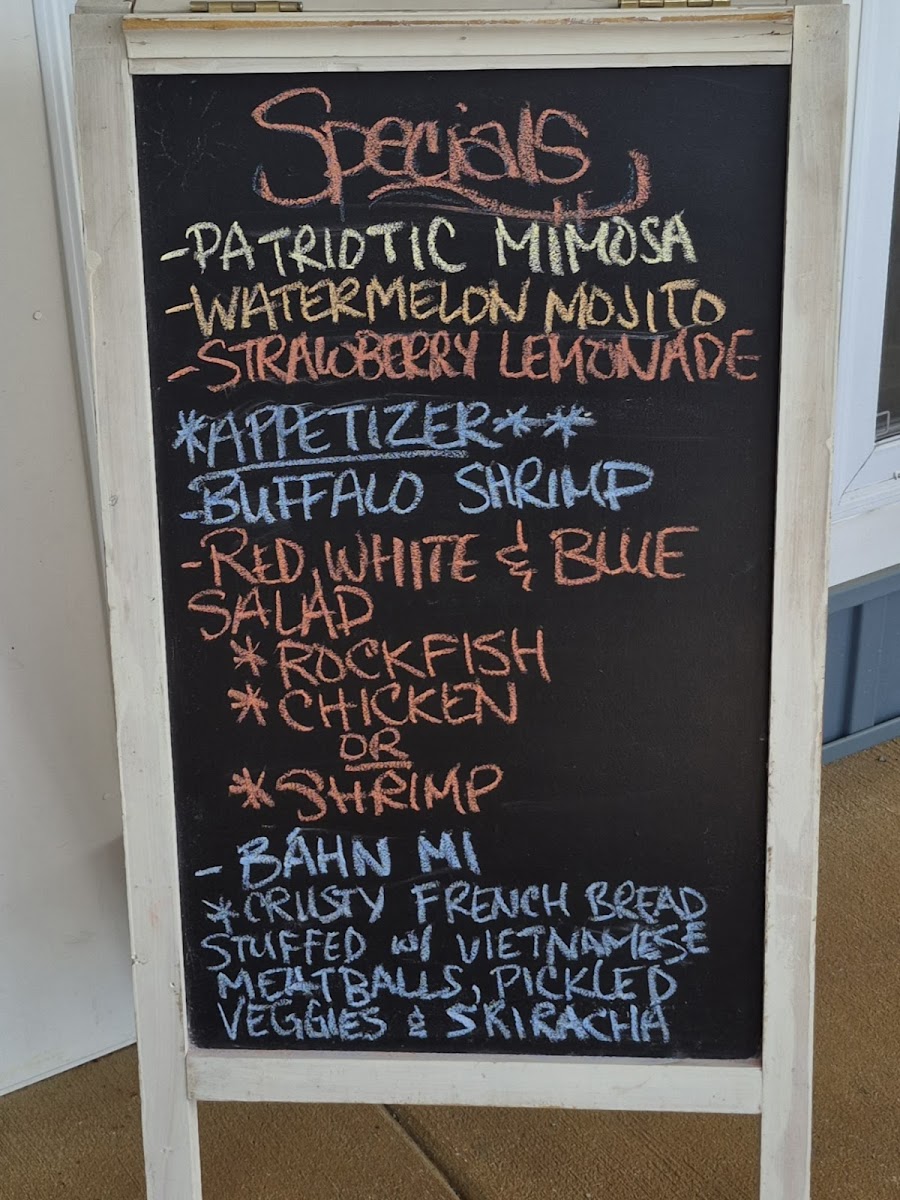 Specials
-PATRIOTIC MIMOSA
-WATERMELON MOJITO
-STRAWBERRY LEMONADE
*APPETIZER**
-BUFFALO SHRIMP
-RED, WHITE & BLUE
SALAD
*ROCKFISH
*CHICKEN
OR
*SHRIMP
-BÁHN MI
*CRUSTY FRENCH BREAD
STUFFED w/ VIETNAMESE
MEATBALLS, PICKLED
VEGGIES & SRIRACHA